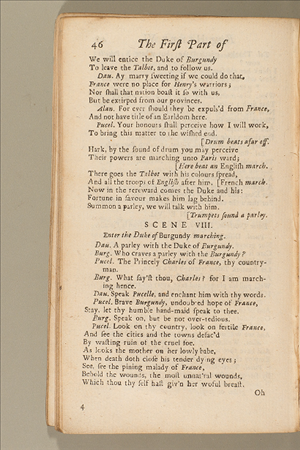 46 The First Part of
We will entice the Duke of Burgundy
To leave the Talbot, and to follow us.
Dau. Ay marry sweeting if we could do that,
France were no place for Henry's warriors;
Nor shall that nation boast it so with us,
But be extirped from our provinces.
Alan. For ever should they be expuls'd from France,
And not have title of an Earldom here.
Pucel. Your honours shall perceive how I will work,
To bring this matter to the wished end.
[Drum beats afar off.
Hark, by the sound of drum you may perceive
Their powers are marching unto Paris ward;
[Here beat an English march.
There goes the Talbot with his colours spread,
And all the troops of English after him. [French march.
Now in the rereward comes the Duke and his:
Fortune in favour makes him lag behind.
Summon a parley, we will talk with him.
[Trumpets sound a parley.
SCENE VIII.
Enter the Duke of Burgundy marching.
Dau. A parley with the Duke of Burgundy.
Burg. Who craves a parley with the Burgundy?
Pucel. The Princely Charles of France, thy country-
man.
Burg. What say'st thou, Charles? for I am march-
ing hence.
Dau. Speak Pucelle, and enchant him with thy words.
Pucel. Brave Burgundy, undoubted hope of France,
Stay, let thy humble hand-maid speak to thee.
Burg. Speak on, but be not over-tedious.
Pucel. Look on thy country, look on fertile France,
And see the cities and the towns defac'd
By wasting ruin of the cruel foe.
As looks the mother on her lowly babe,
When death doth close his tender dying eyes;
See, see the pining malady of France,
Behold the wounds, the most unnat'ral wounds,
Which thou thy self hast giv'n her woful breast.
Oh
4